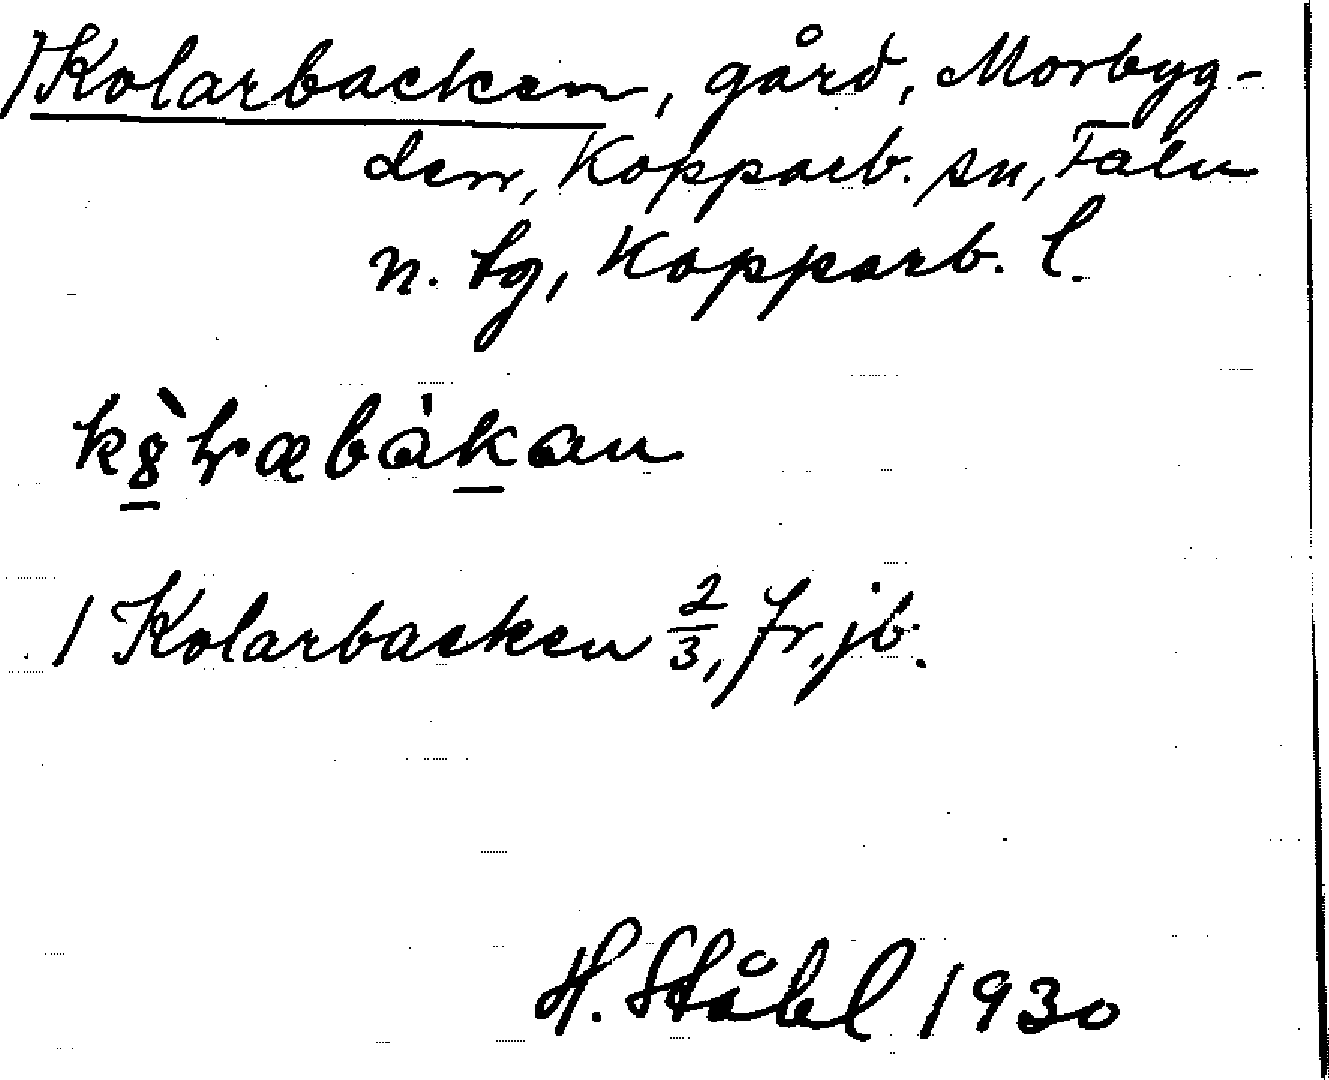 1 Kolarbacken, gård, Morbyg-
den, Kopparb. sn, Falu
n. tg, Kopparb. l.
1 Kolarbacken 2/3, fr, jb.
H. Ståhl 1930